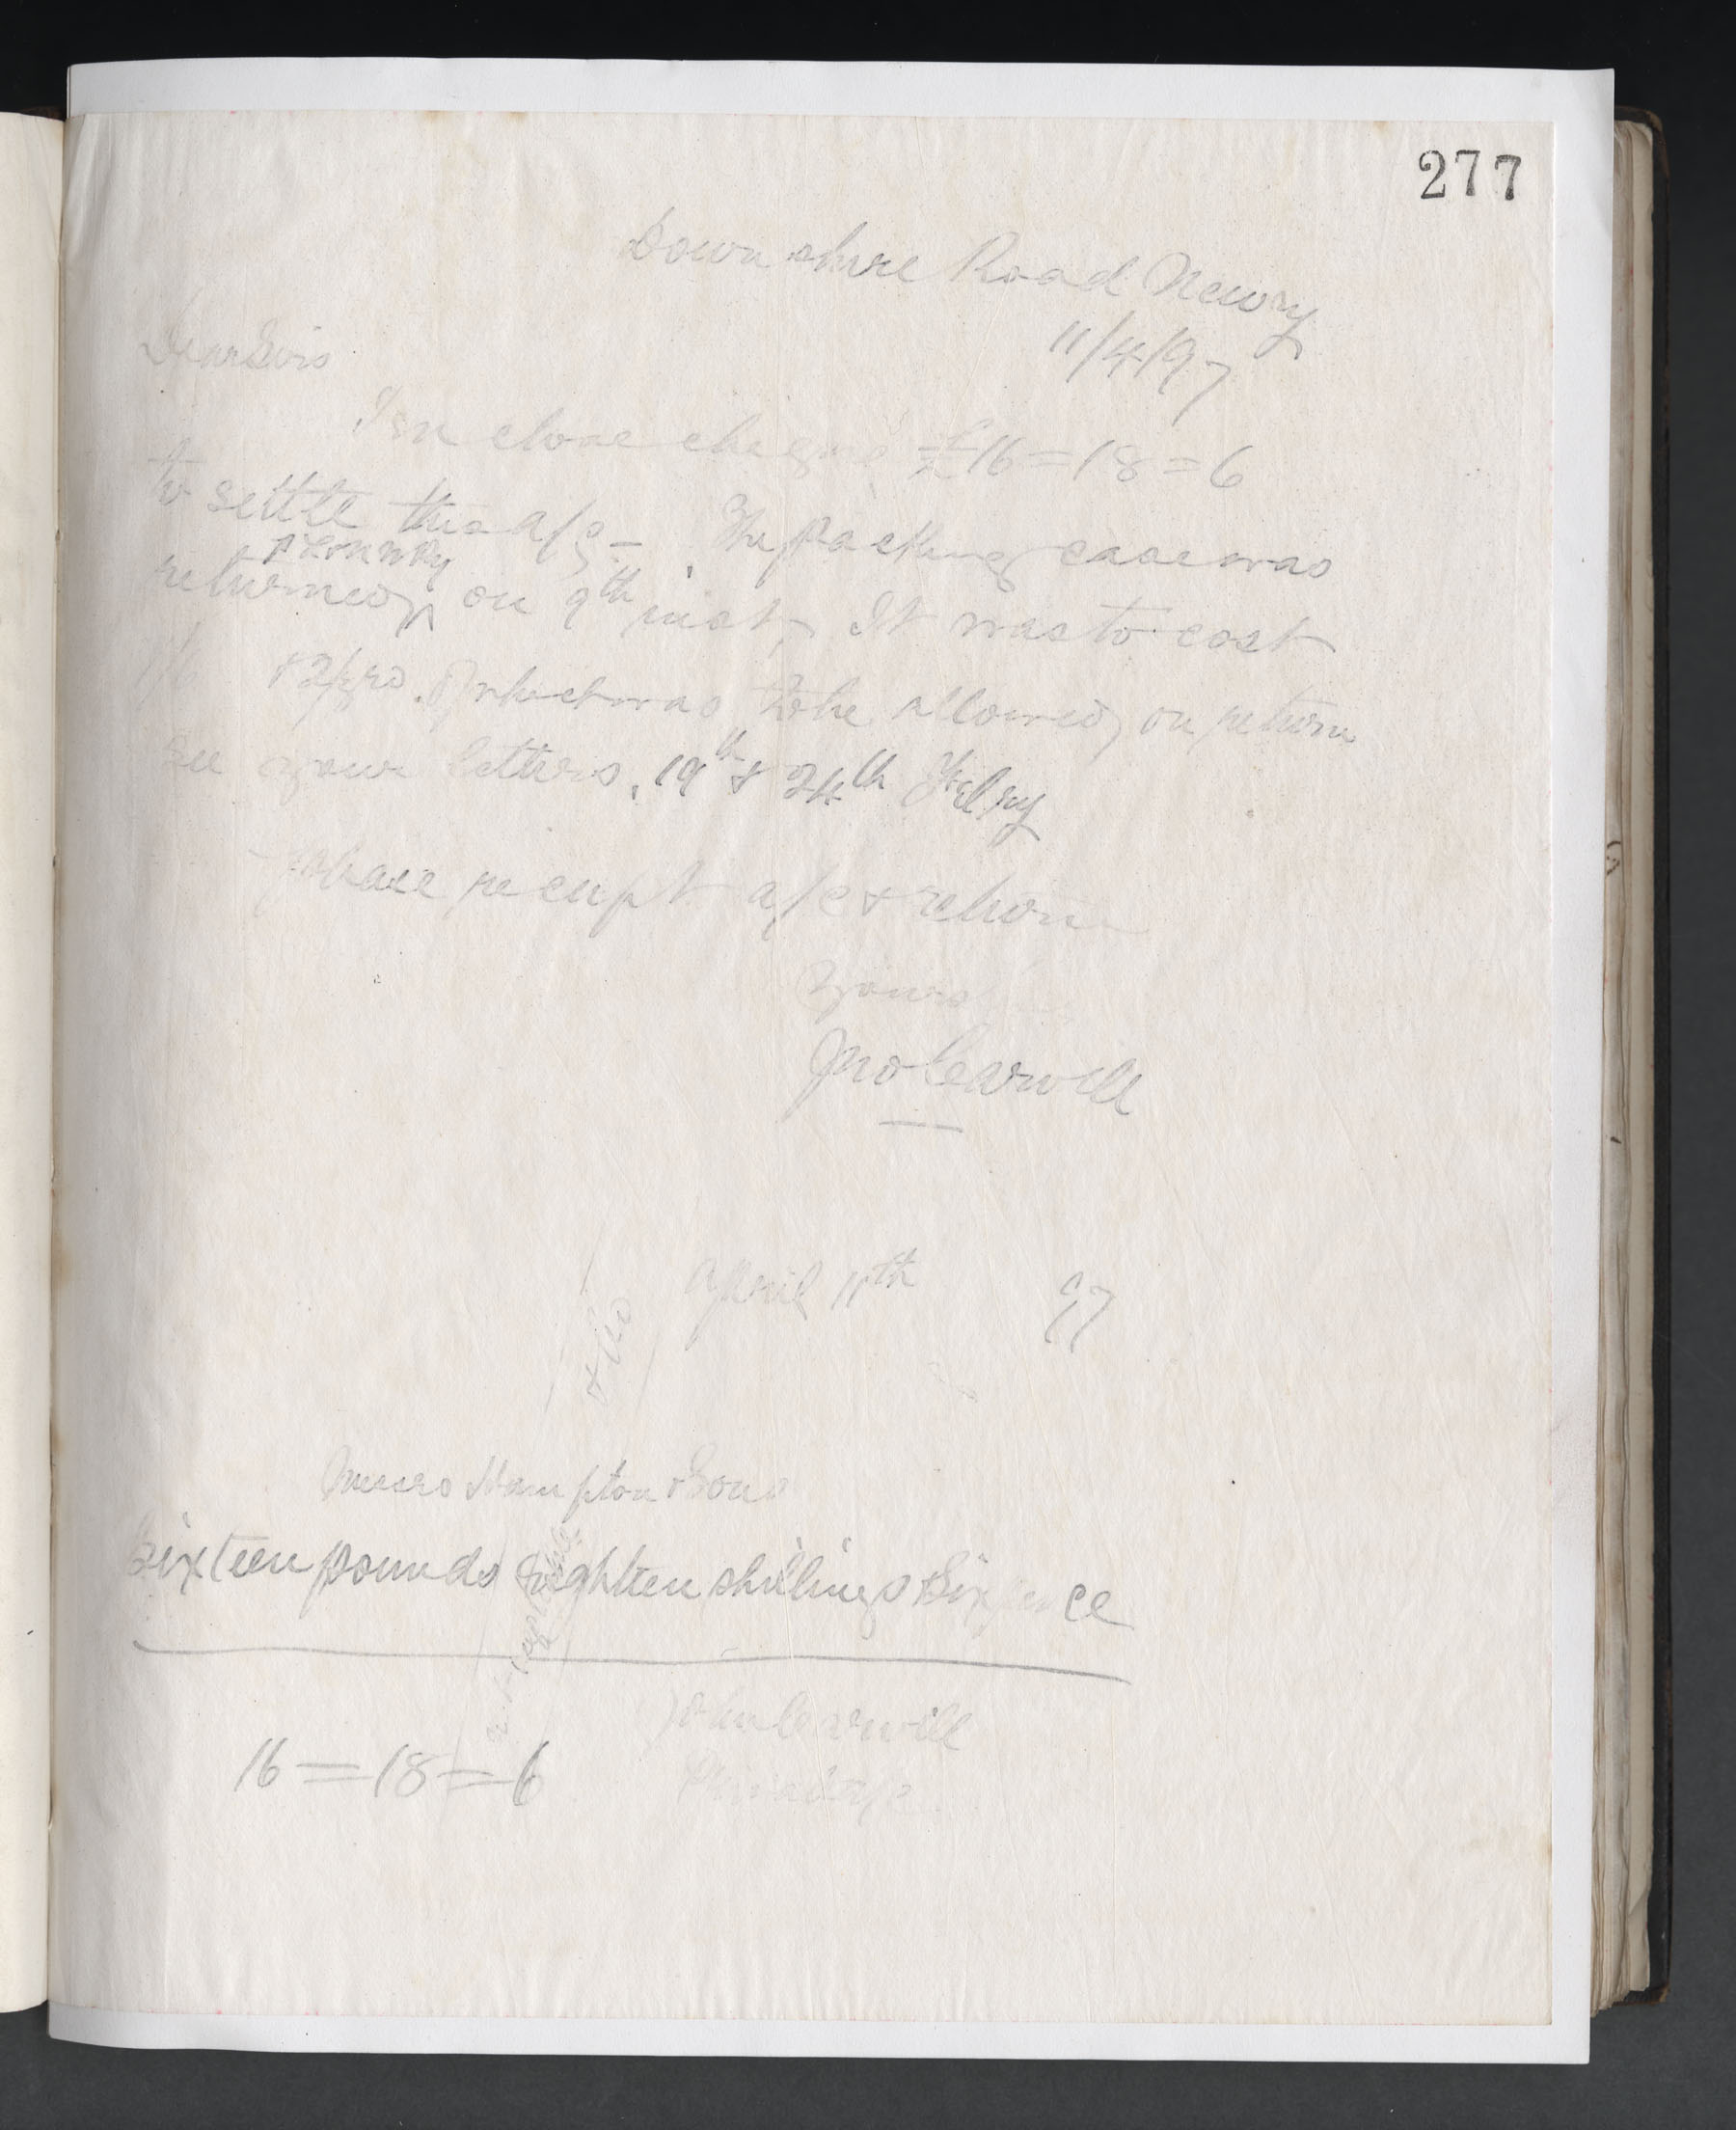 277
Downshire Road Newry
11/4/97
Dear Sirs
I enclose cheque £16=18=6
to settle this a/c - The packing case was
returned on 9th inst, It was to cost
7/6 & 2/3rd of which was to be allowed on return
see your letters, 19th & 24th Febry
please receipt a/c & return
Yours
Jno Carvill
April 11th 97
& Co
Messrs Hampton & Sons
Sixteen pounds Eighteen shillings & Sixpence
John Carvill
16=18=6
Private a/c